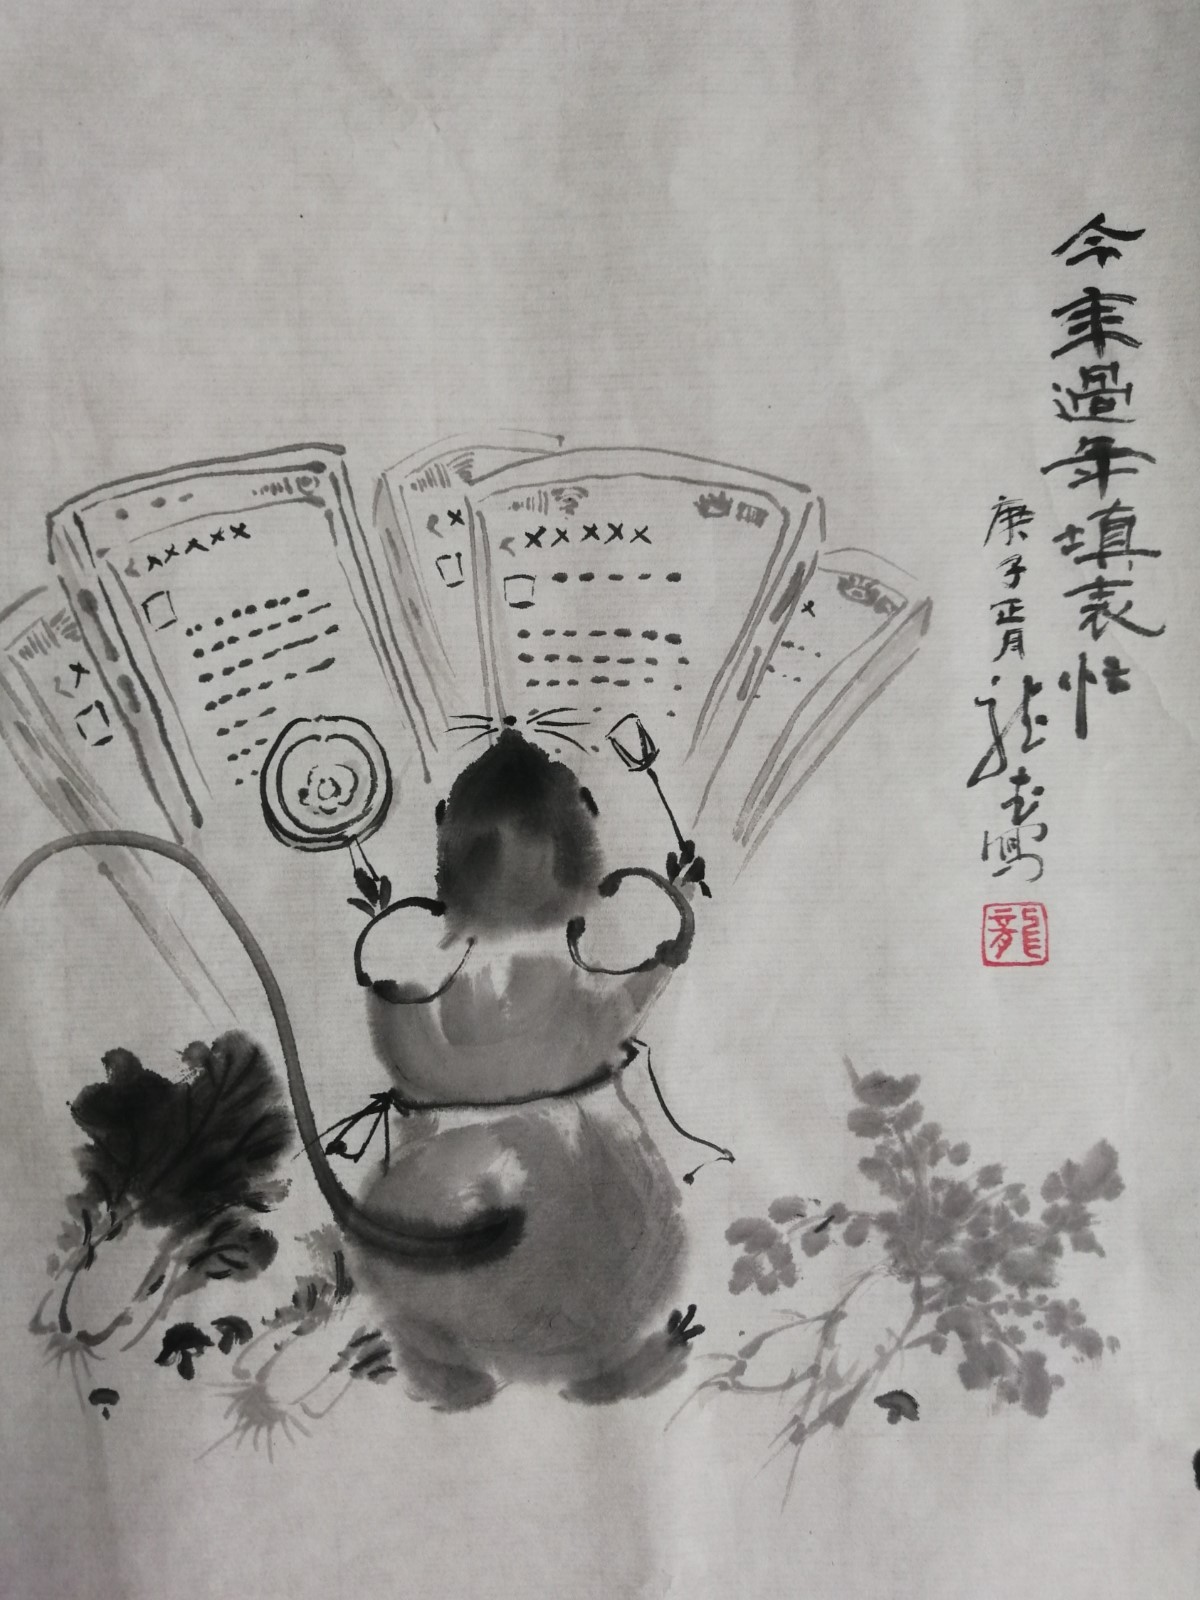 今年過年填表忙
庚子正月龍志寫
龍